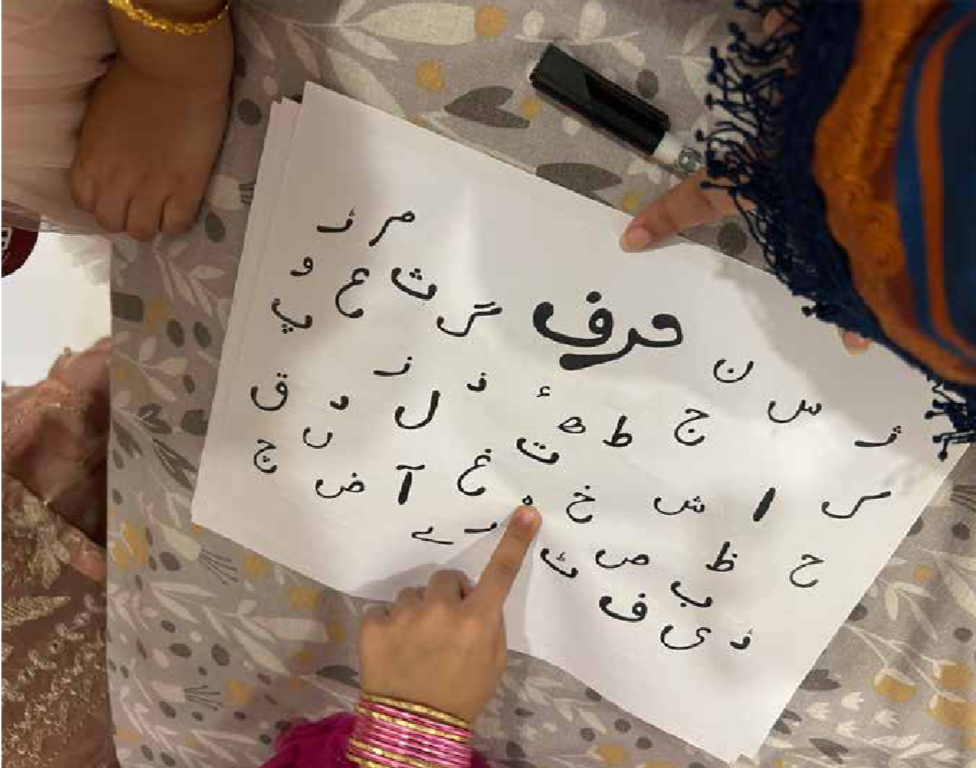 م ڑ
ث ع و
حرف
گ پ
ن
ژ س ج ط ھ ء ذ ز
ت ل د ق
ں چ
ک ا ش خ ہ غ آ ض
ر ے
ح ظ ص ٹ
ب ف
ڈ ی